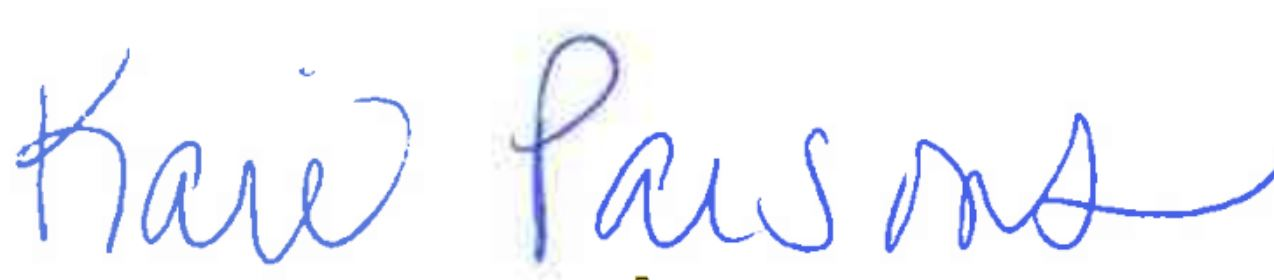 Karie Parsons